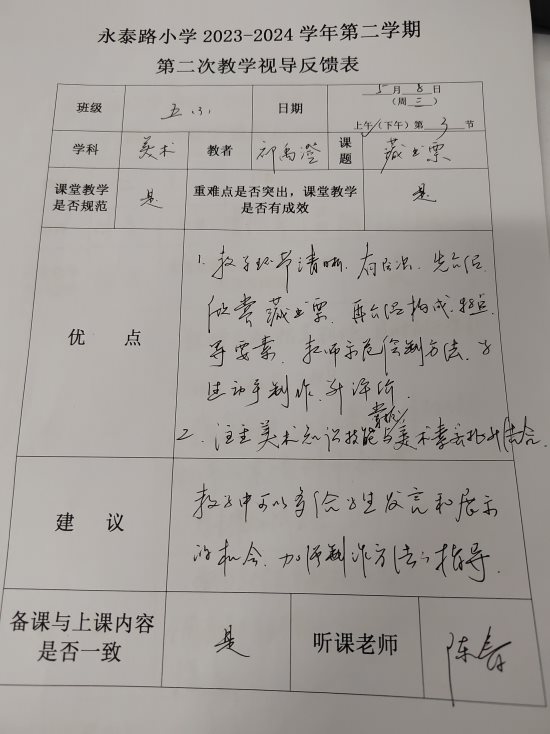 永泰路小学 2023-2024 学年第二学期
第二次教学视导反馈表
班级 五.(3) 日期 5月8日
(周三)
上午/(下午)第3节
学科 美术 教者 祁禹澄 课题 藏书票
课堂教学是否规范 是 重难点是否突出,课堂教学是否有成效 是
优 点
1. 教学环节清晰.有层次.先介绍
欣赏藏书票.再介绍构成.
导要素.教师示范绘制方法.学
生动手制作.并评价
2. 注重美术知识技能与美术素养 结合.
建 议
教学中可以多给学生发言和展示
的机会.加强制作方法的指导.
备课与上课内容是否一致 是 听课老师 陈